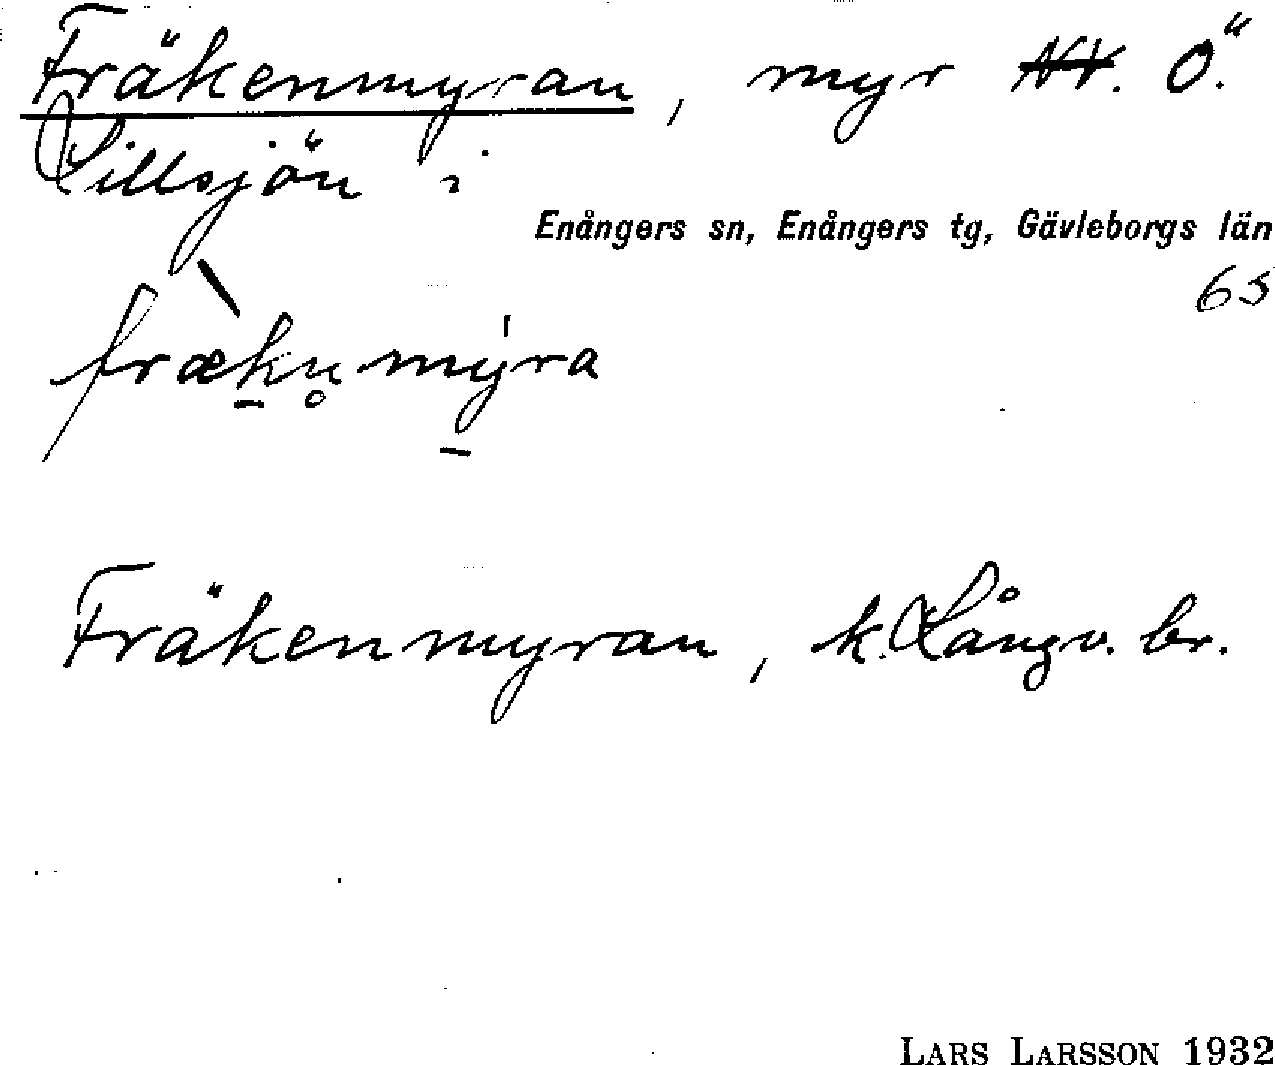 Fräkenmyran, myr N.V. Ö.
Lillsjön i
Enångers sn, Enångers tg, Gävleborgs län
65
frækn̥my̠ra
Fräkenmyran, k. Långv. br.
LARS LARSSON 1932